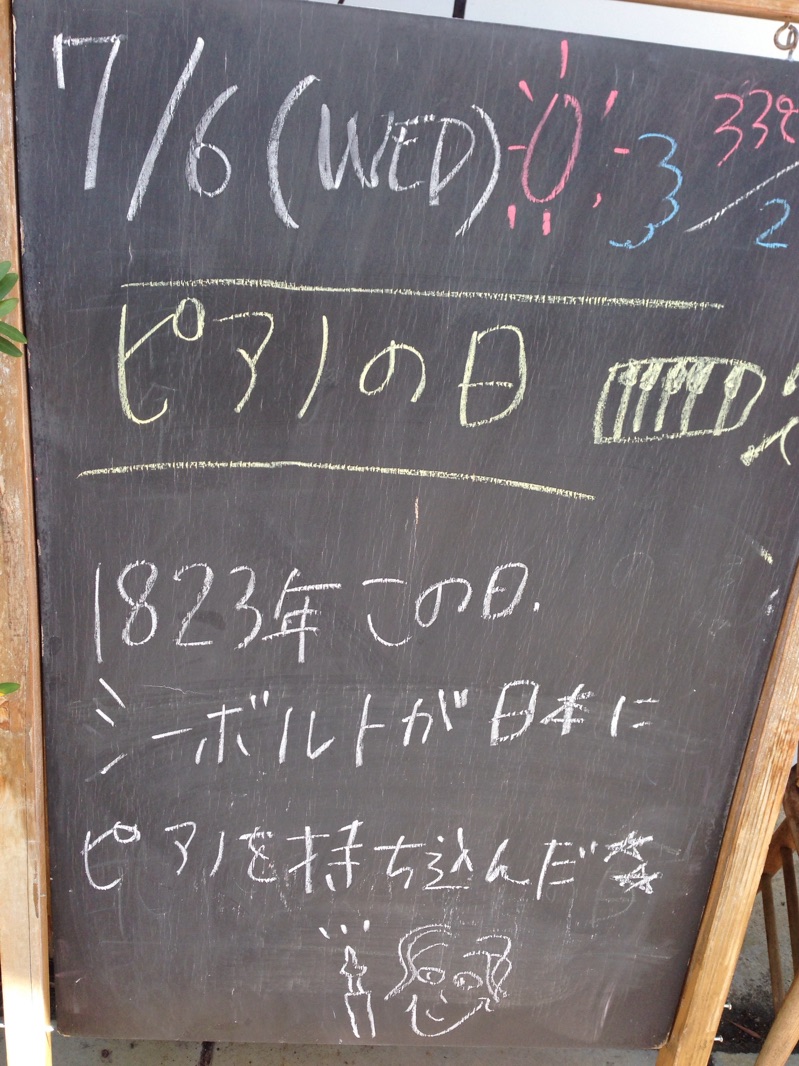 7/6(WED) 33℃/2
ピアノの日
1823年この日.
シーボルトが日本に
ピアノを持ち込んだ